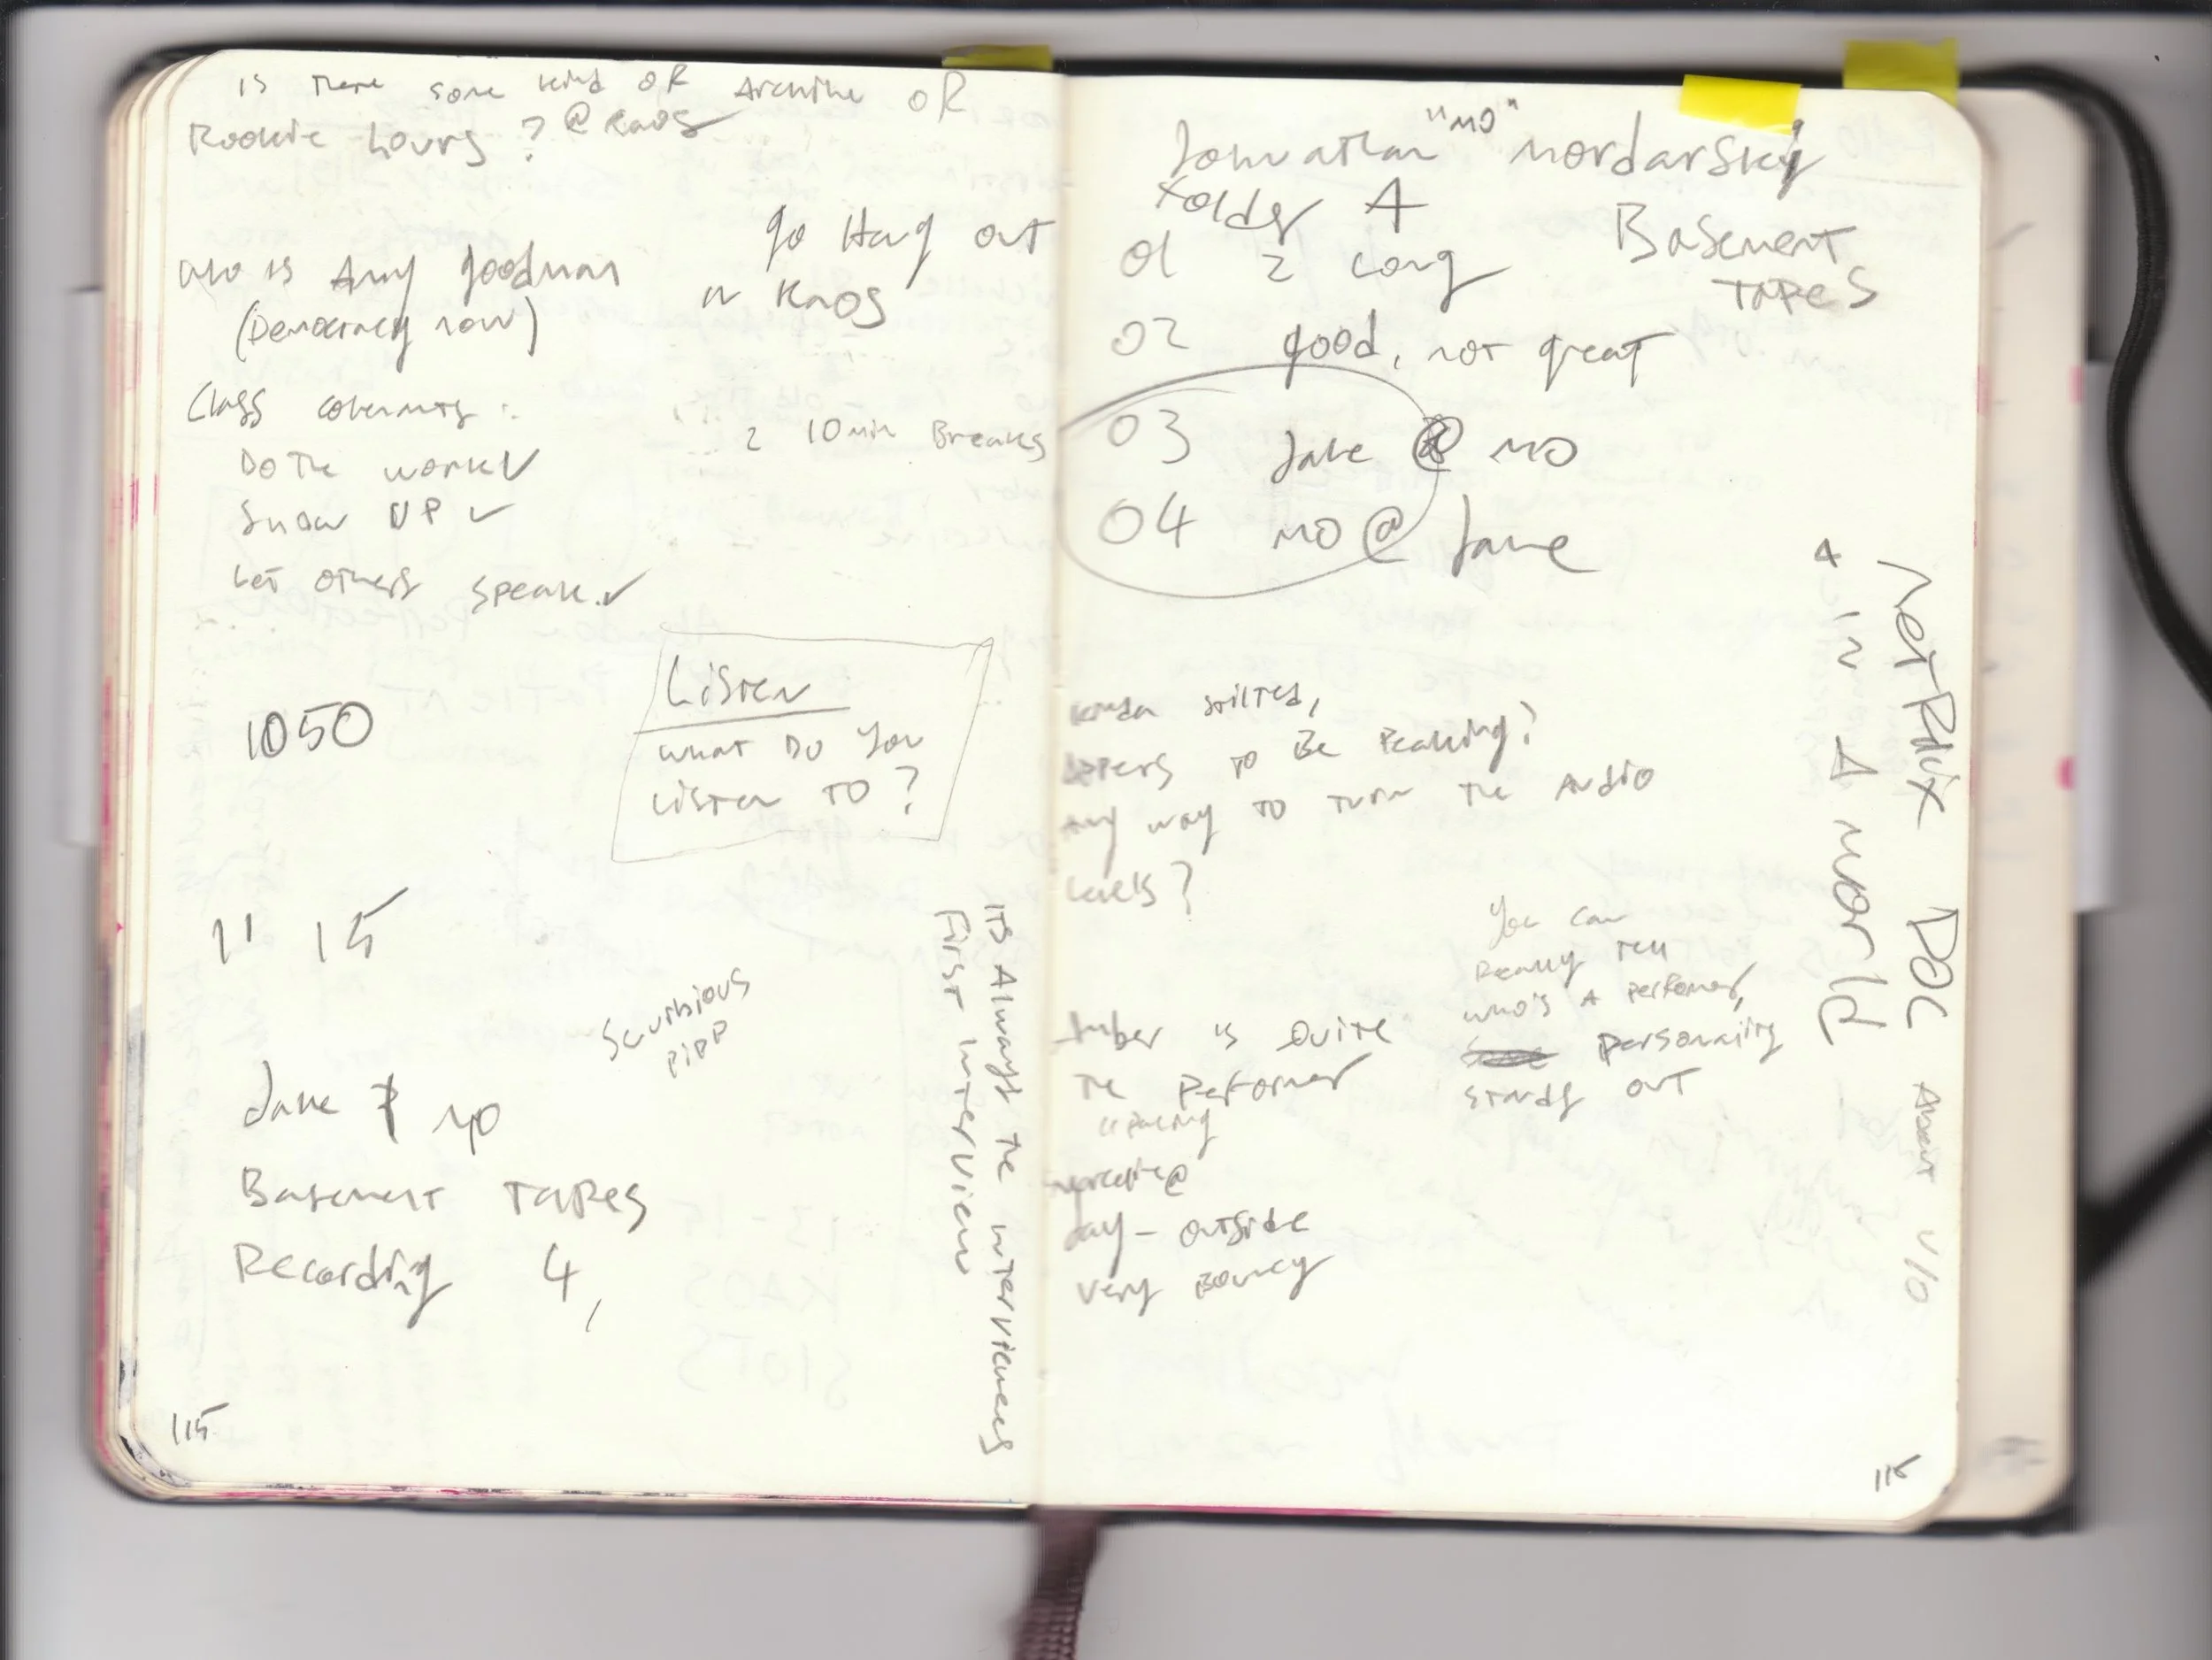 is there some kind of Archive or
Rookie hours? @ Kaos
go Hang out
in Kaos
who is Amy goodman
(Democracy now)
Class covenants:
2 10 min Breaks
Do the work ✓
Show UP ✓
Let others speak. ✓
Listen
what do you
listen to?
1050
11 15
Scurbious
Pipp
Jake & MO
Basement Tapes
Recording 4,
its Always the interviewees
First interview
115
"MO"
Johnathan Mordarsky
Folder A
Basement
Tapes
01 2 long
02 good, not great
03 Jake @ MO
04 MO @ Jake
kinda stilted,
to be Peaking?
Any way to turn the Audio
levels?
You can
Really tell
who's A performer,
personality
stands out
is quite
the performer
day - outside
very Bouncy
NetFlix DOC About V/O
4 in A world
116